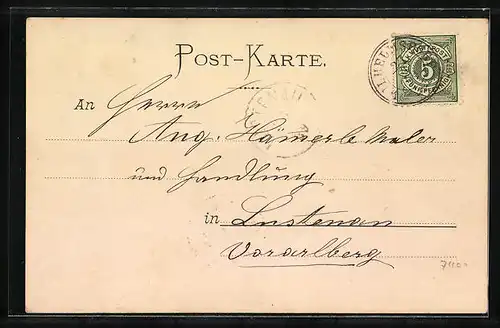 POST-KARTE.
An Herrn
Aug. Hämerle Maler
und Handlung
in Lustenau
Vorarlberg
5
7100